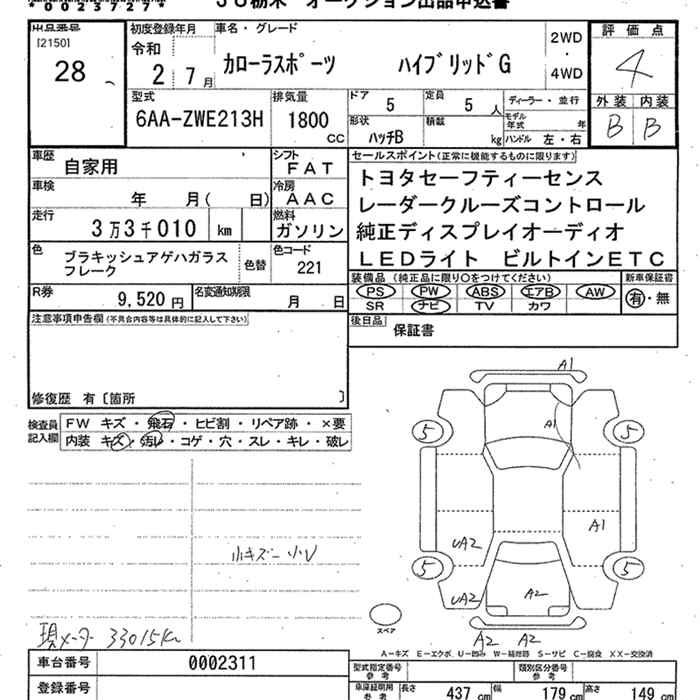 *0023727*
JU栃木 オークション出品申込書
出品番号
[2150]
28
初度登録年月
令和
2 7月
車名・グレード
カローラスポーツ ハイブリッドG
2WD
・
4WD
評価点
4
外装 内装
B B
型式
6AA-ZWE213H
排気量
1800
CC
ドア
5
定員
5 人
形状
ハッチB
積載
kg
ディーラー・並行
モデル年式 年
ハンドル 左・右
車歴
自家用
シフト
FAT
車検
年 月( 日)
冷房
AAC
走行
3万3千010 km
燃料
ガソリン
色
ブラキッシュアゲハガラス
フレーク
色替
色コード
221
R券
9,520円
名変通知期限
月 日
セールスポイント(正常に機能するものに限ります)
トヨタセーフティーセンス
レーダークルーズコントロール
純正ディスプレイオーディオ
LEDライト ビルトインETC
装備品 (純正品に限り○をつけてください)
新車保証書
PS PW ABS エアB AW
SR ナビ TV カワ
有・無
後日品
保証書
注意事項申告欄(不具合内容等は具体的に記入して下さい)
修復歴 有〔箇所 〕
検査員
記入欄
FW キズ・飛石・ヒビ割・リペア跡・×要
内装 キズ・汚レ・コゲ・穴・スレ・キレ・破レ
小キズ 小U
現メーター 33015km
A1
A1
5 5
A1
UA2
5 5
UA2
A2
A2 A2
スペア
A-キズ E-エクボ U-凹み W-補修跡 S-サビ C-腐食 XX-交換済
車台番号
0002311
登録番号
型式指定番号
参考
類別区分番号
参考
車庫証明用
参考
長さ 437 cm
幅 179 cm
高さ 149 cm